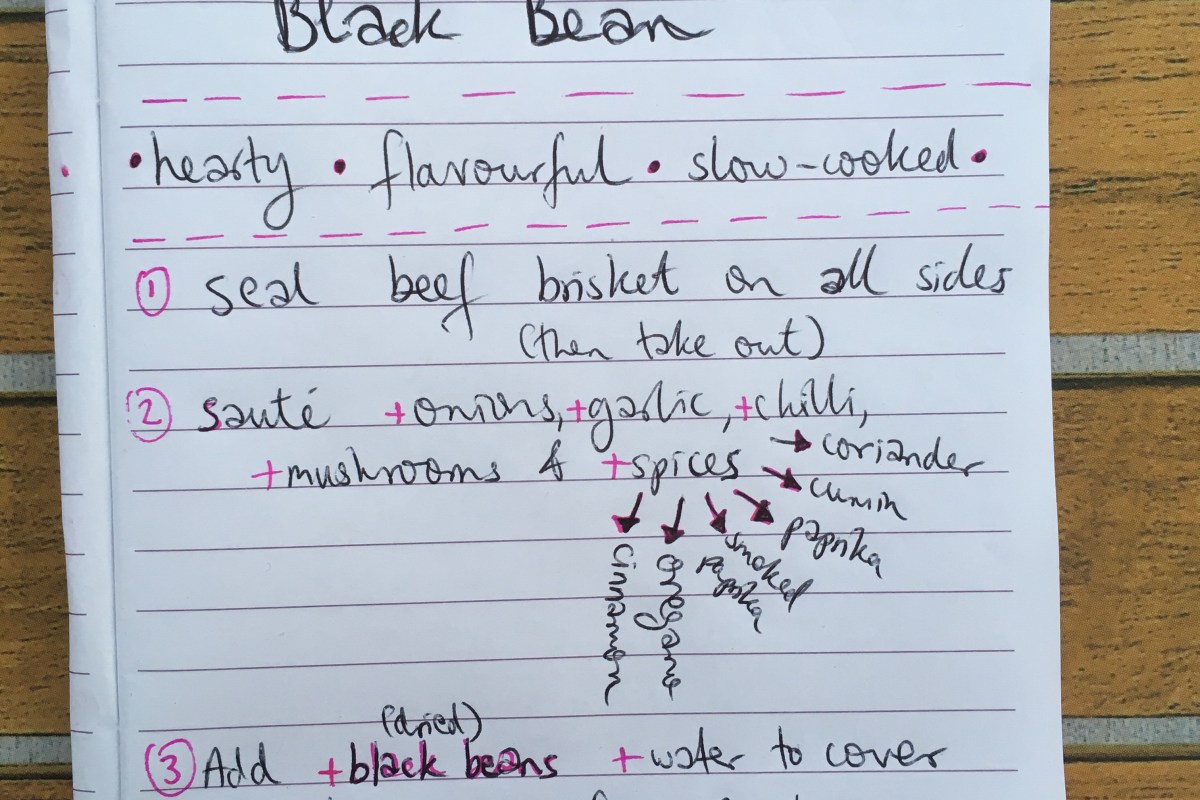 Black Bean
• hearty • flavourful • slow-cooked •
① seal beef brisket on all sides
(then take out)
② sauté +onions, +garlic, +chilli,
+mushrooms & +spices → coriander
→ cumin
→ paprika
→ smoked paprika
→ oregano
→ cinnamon
(dried)
③ Add +black beans +water to cover